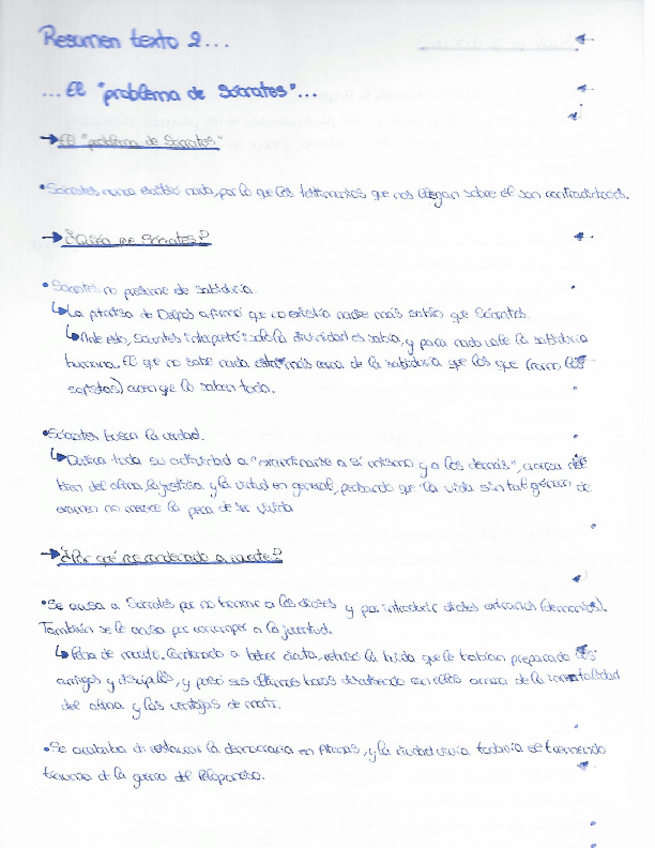 Resumen texto 2...
...El "problema de Sócrates"...
→ El "problema de Sócrates"
• Sócrates nunca escribió nada, por lo que los testimonios que nos llegan sobre él son contradictorios.
→ ¿Quién fue Sócrates?
• Sócrates no presume de sabiduría.
↳ La pitonisa de Delfos afirmó que no existía nadie más sabio que Sócrates.
↳ Ante esto, Sócrates "interpretó": sólo la divinidad es sabia, y para nada vale la sabiduría
humana. El que no sabe nada está más cerca de la sabiduría que los que (como los
sofistas) creen que lo saben todo.
• Sócrates busca la verdad.
↳ Dedica toda su actividad a "examinarse a sí mismo y a los demás", acerca del
bien del alma, la justicia y la virtud en general, pensando que "la vida sin tal género de
examen no merece la pena de ser vivida
→ ¿Por qué fue condenado a muerte?
• Se acusa a Sócrates por no honrar a los dioses y por introducir dioses extraños (demonios).
También se le acusa por corromper a la juventud.
↳ Pena de muerte. Condenado a beber cicuta, rehusó la huida que le habían preparado sus
amigos y discípulos, y pasó sus últimas horas discutiendo con ellos acerca de la inmortalidad
del alma y las ventajas de morir.
• Se acababa de restaurar la democracia en Atenas, y la ciudad vivía todavía el tremendo
trauma de la guerra del Peloponeso.